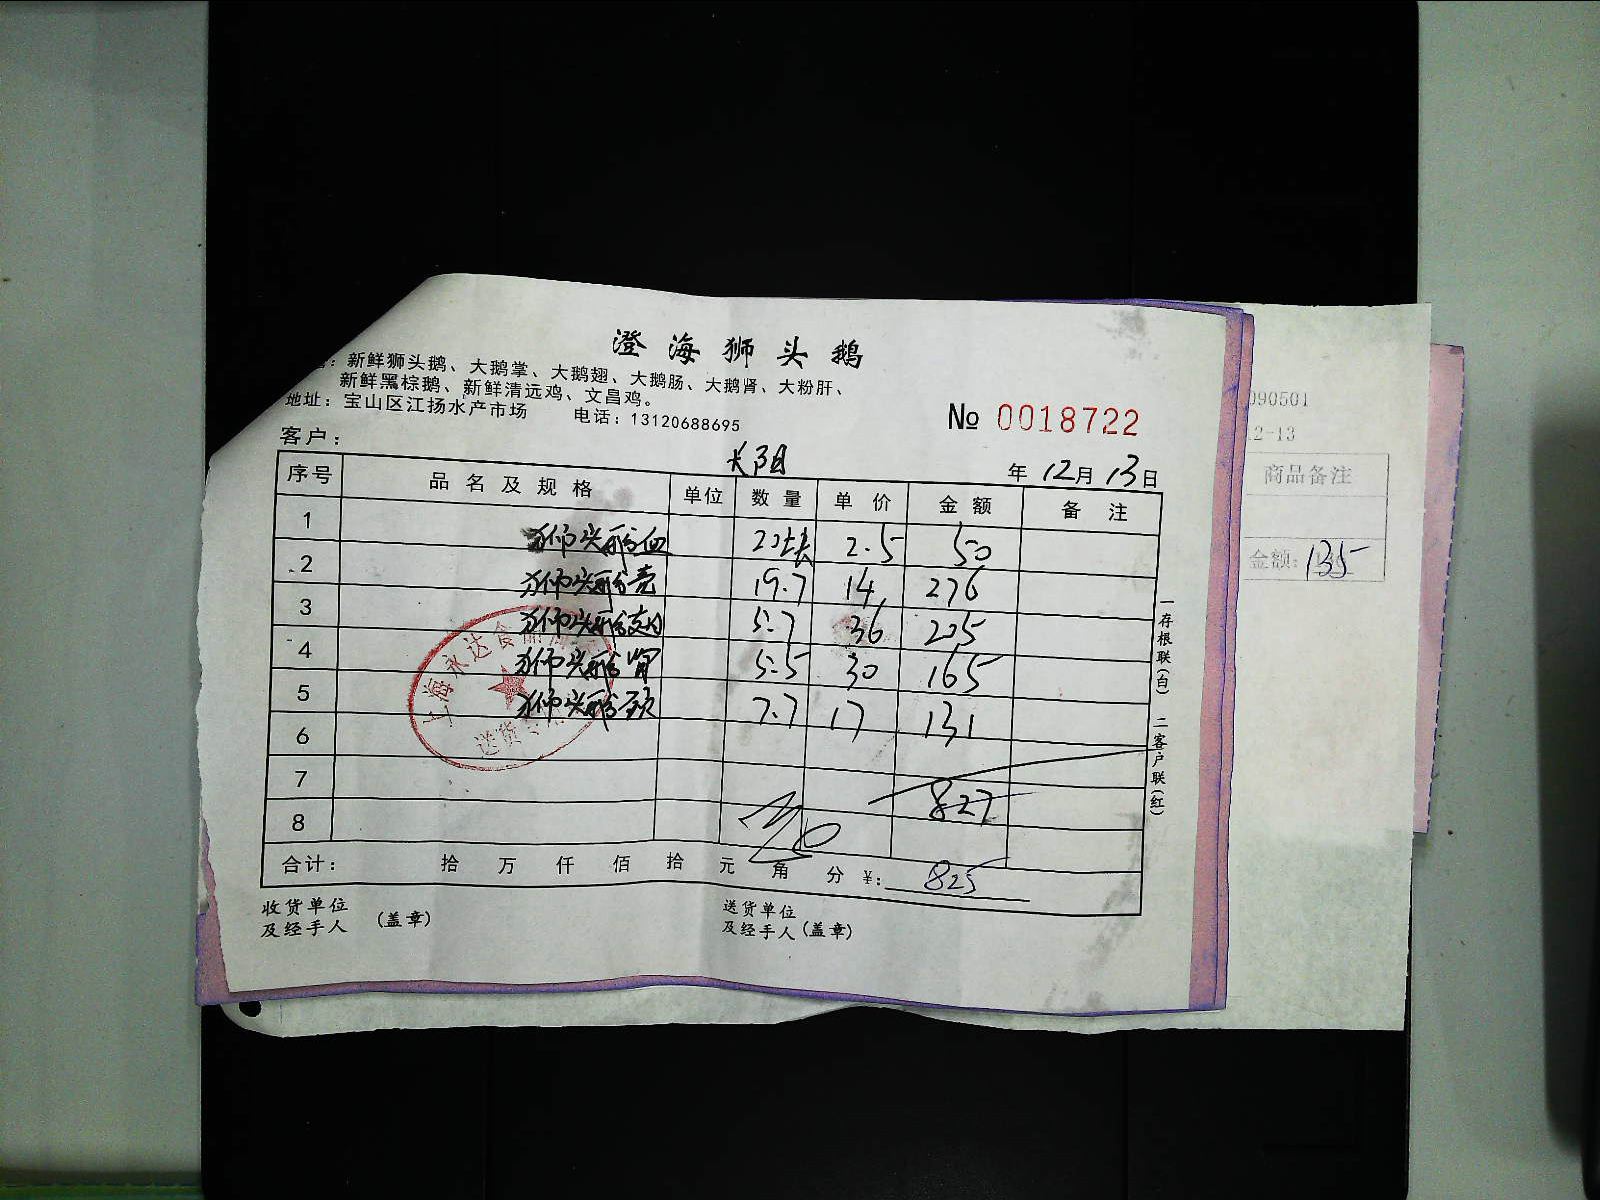 澄海狮头鹅
:新鲜狮头鹅、大鹅掌、大鹅翅、大鹅肠、大鹅肾、大粉肝、
新鲜黑棕鹅、新鲜清远鸡、文昌鸡。
地址:宝山区江扬水产市场 电话:13120688695
№ 0018722
客户:
大阳
年 12月 13日
序号 品名及规格 单位 数量 单价 金额 备注
1 狮头鹅血 20块 2.5 50
2 狮头鹅壳 19.7 14 276
3 狮头鹅 5.7 36 205
4 狮头鹅肾 5.5 30 165
5 狮头鹅颈 7.7 17 131
6
7 827
8
合计: 拾 万 仟 佰 拾 元 角 分 ¥: 825
收货单位
及经手人 (盖章)
送货单位
及经手人 (盖章)
一存根联(白) 二客户联(红)
上海永达食品
送货专
090501
12-13
商品备注
金额: 135